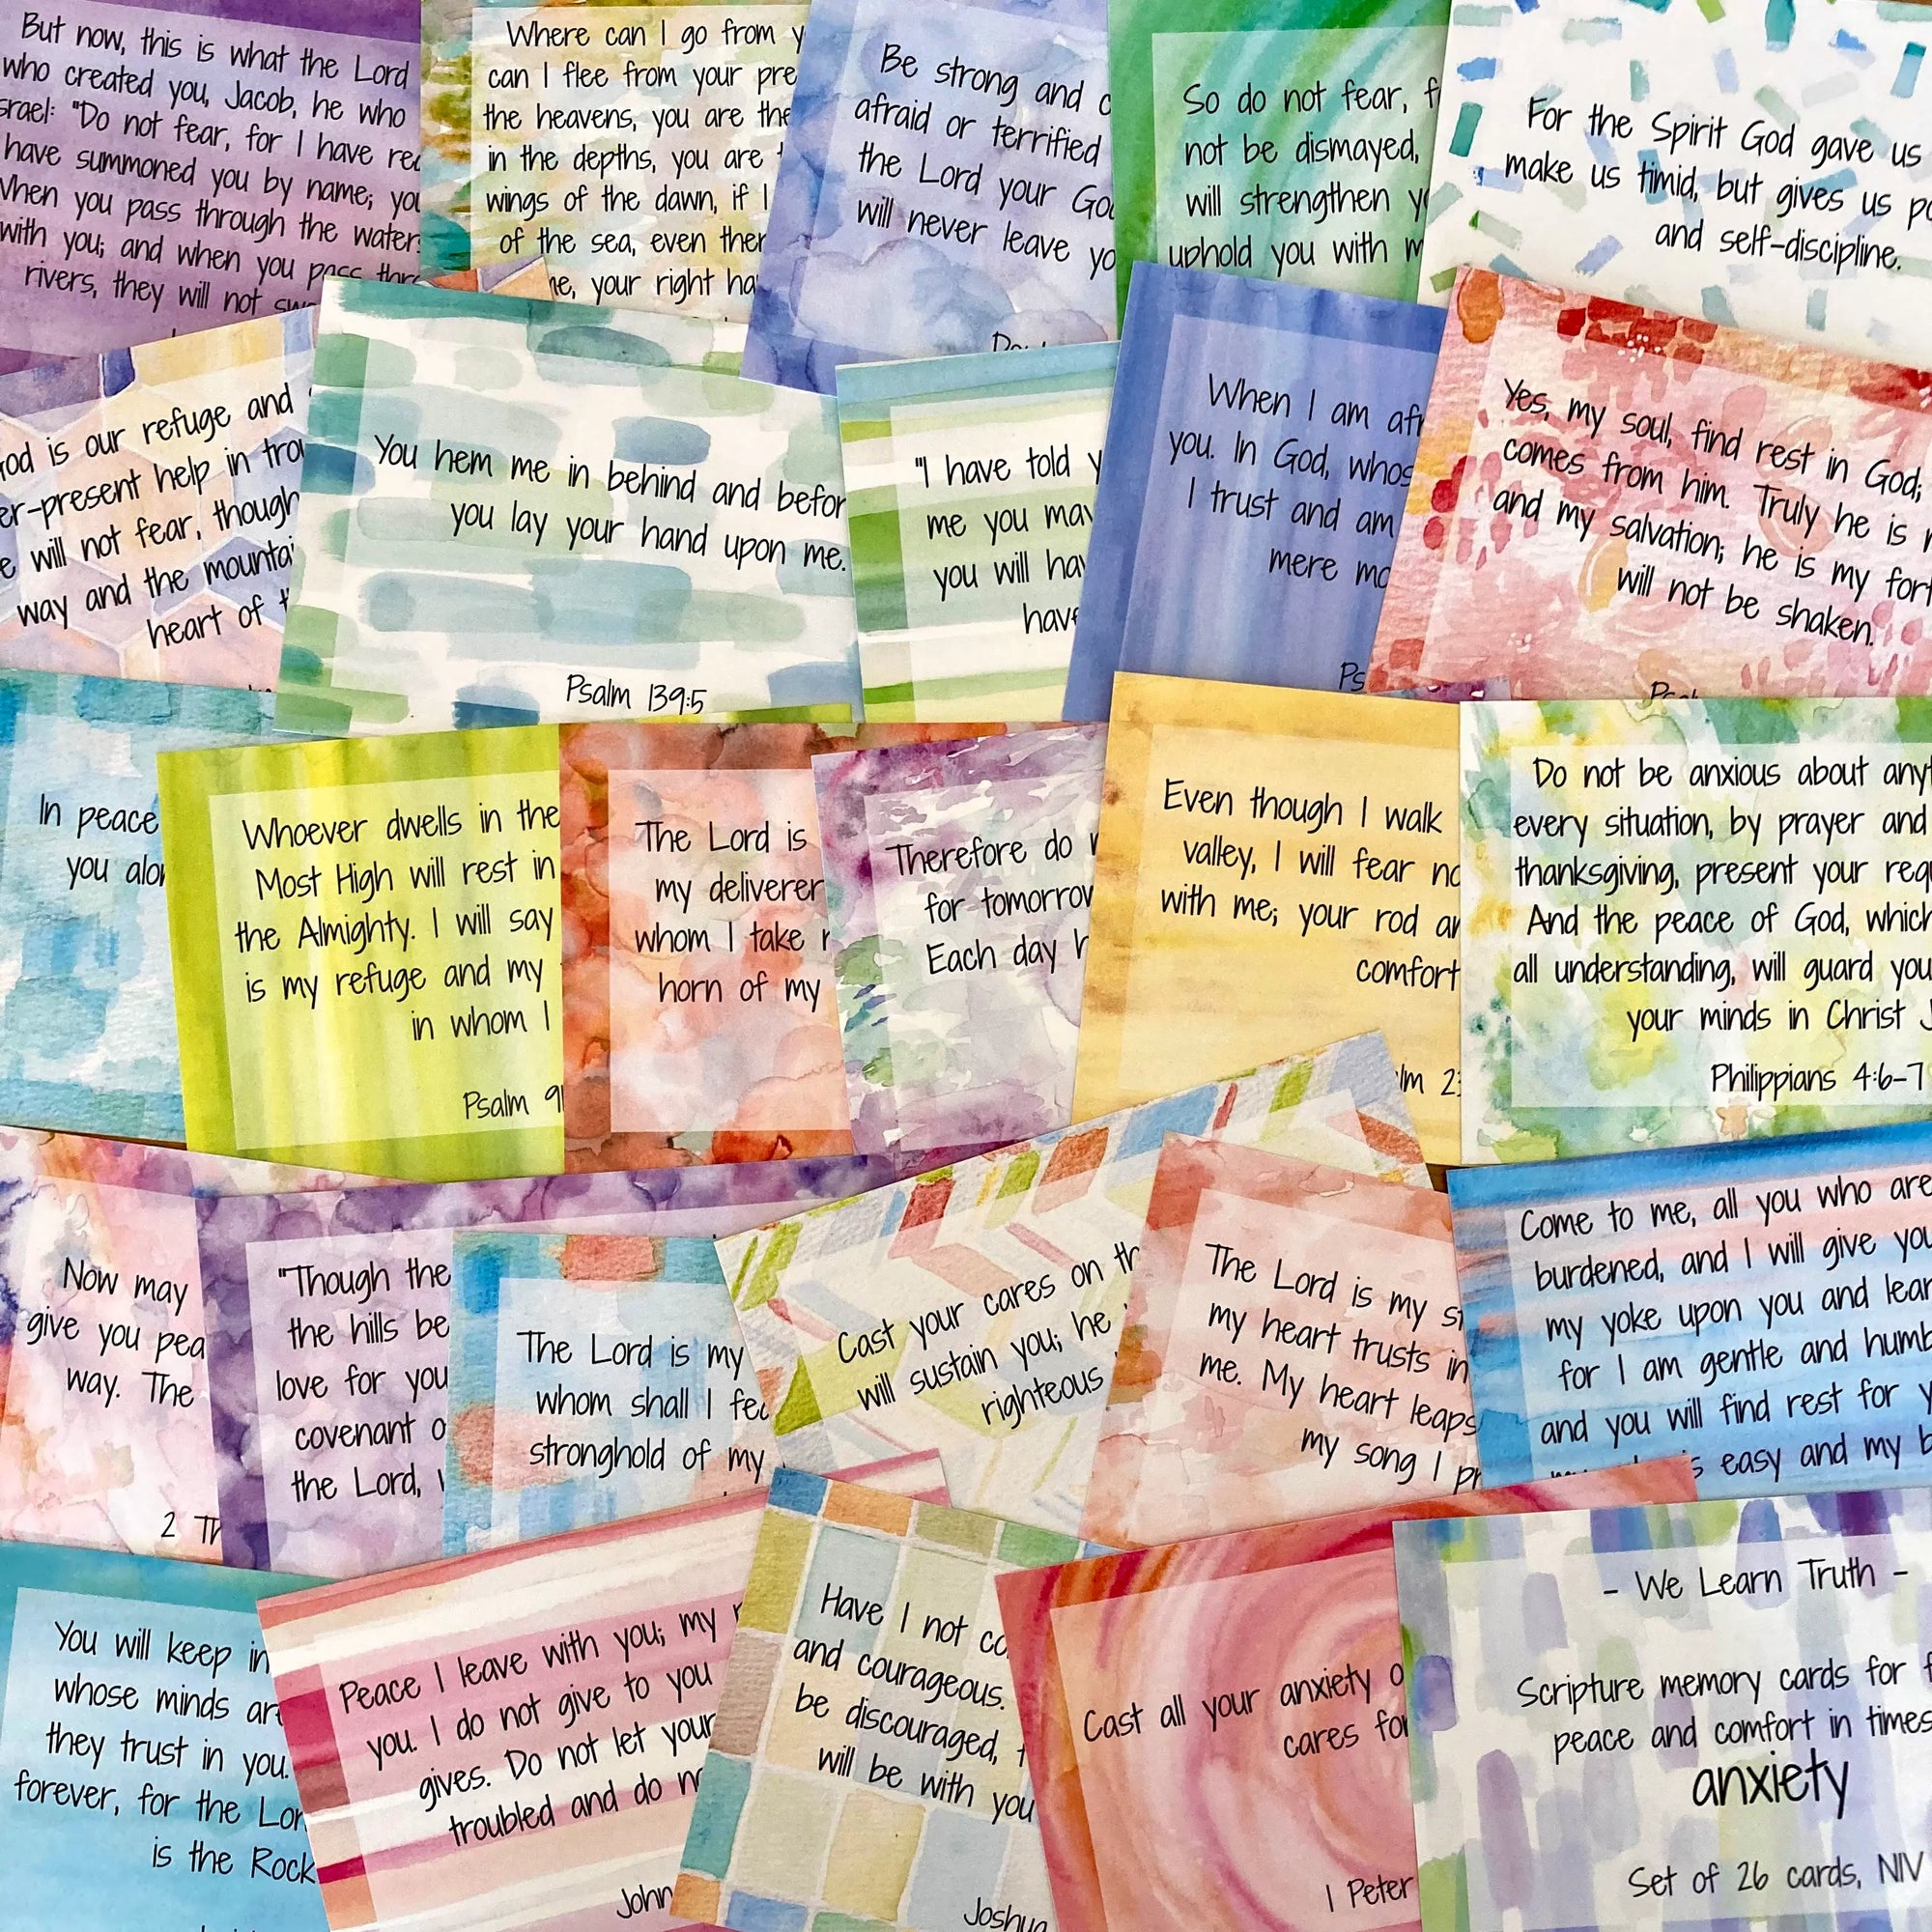 But now, this is what the Lord
who created you, Jacob, he who
"Do not fear, for I have
have summoned you by name;
When you pass through the
with you; and when you pass
rivers, they will not
Where can I go from
can I flee from your
the heavens, you are
in the depths, you are
wings of the dawn, if I
of the sea, even
your right
Be strong and
afraid or terrified
the Lord your
will never leave
So do not fear,
not be dismayed,
will strengthen
uphold you with
For the Spirit God gave us
make us timid, but gives us
and self-discipline.
is our refuge and
help in
will not fear,
way and the
heart of
You hem me in behind and
you lay your hand upon me.
Psalm 139:5
"I have told
me you
you will
When I am
you. In God,
I trust and am
mere
Yes, my soul, find rest in God;
comes from him. Truly he is
and my salvation; he is my
will not be shaken.
In peace
you
Whoever dwells in the
Most High will rest in
the Almighty. I will say
is my refuge and my
in whom I
Psalm
The Lord is
my deliverer
whom I take
horn of my
Therefore do
for
Each day
Even though I walk
valley, I will fear
with me; your rod
comfort
Do not be anxious about
every situation, by prayer and
thanksgiving, present your
And the peace of God,
all understanding, will guard
your minds in Christ
Philippians 4:6-7
Now may
give you
way. The
2
"Though the
the hills
love for you
covenant
the Lord,
The Lord is my
whom shall I
stronghold of my
Cast your cares on
will sustain you; he
righteous
The Lord is my
my heart trusts in
me. My heart leaps
my song I
Come to me, all you who are
burdened, and I will give
my yoke upon you and
for I am gentle and
and you will find rest for
easy and my
You will keep in
whose minds
they trust in you.
forever, for the
is the Rock
Peace I leave with you; my
you. I do not give to you
gives. Do not let your
troubled and do
John
Have I not
and courageous.
be discouraged,
will be with you
Joshua
Cast all your anxiety
cares
1 Peter
- We Learn Truth -
Scripture memory cards for
peace and comfort in times
anxiety
Set of 26 cards, NIV